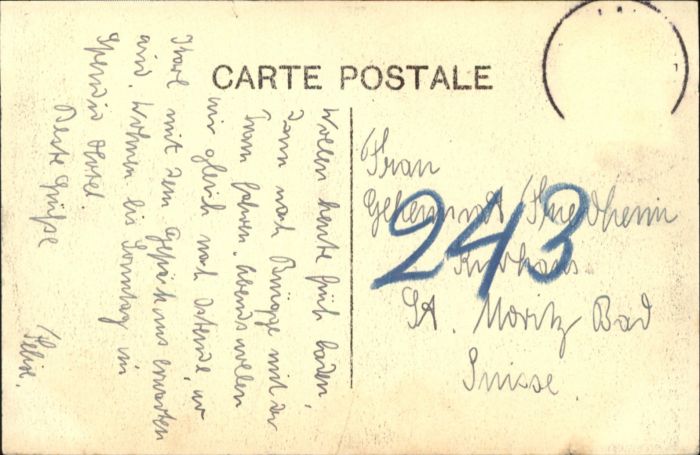 CARTE POSTALE
Wollen heute früh baden,
dann nach Brügge mit der
Tram fahren. Abends wollen
wir gleich nach Ostende, wo
Karl mit dem Gepäck uns erwarten
wird. Wohnen bis Sonntag im
Splendid Hotel
Beste Grüße
Felix.
Frau
Geheimrat
Kurhaus
St. Moritz Bad
Suisse.
243